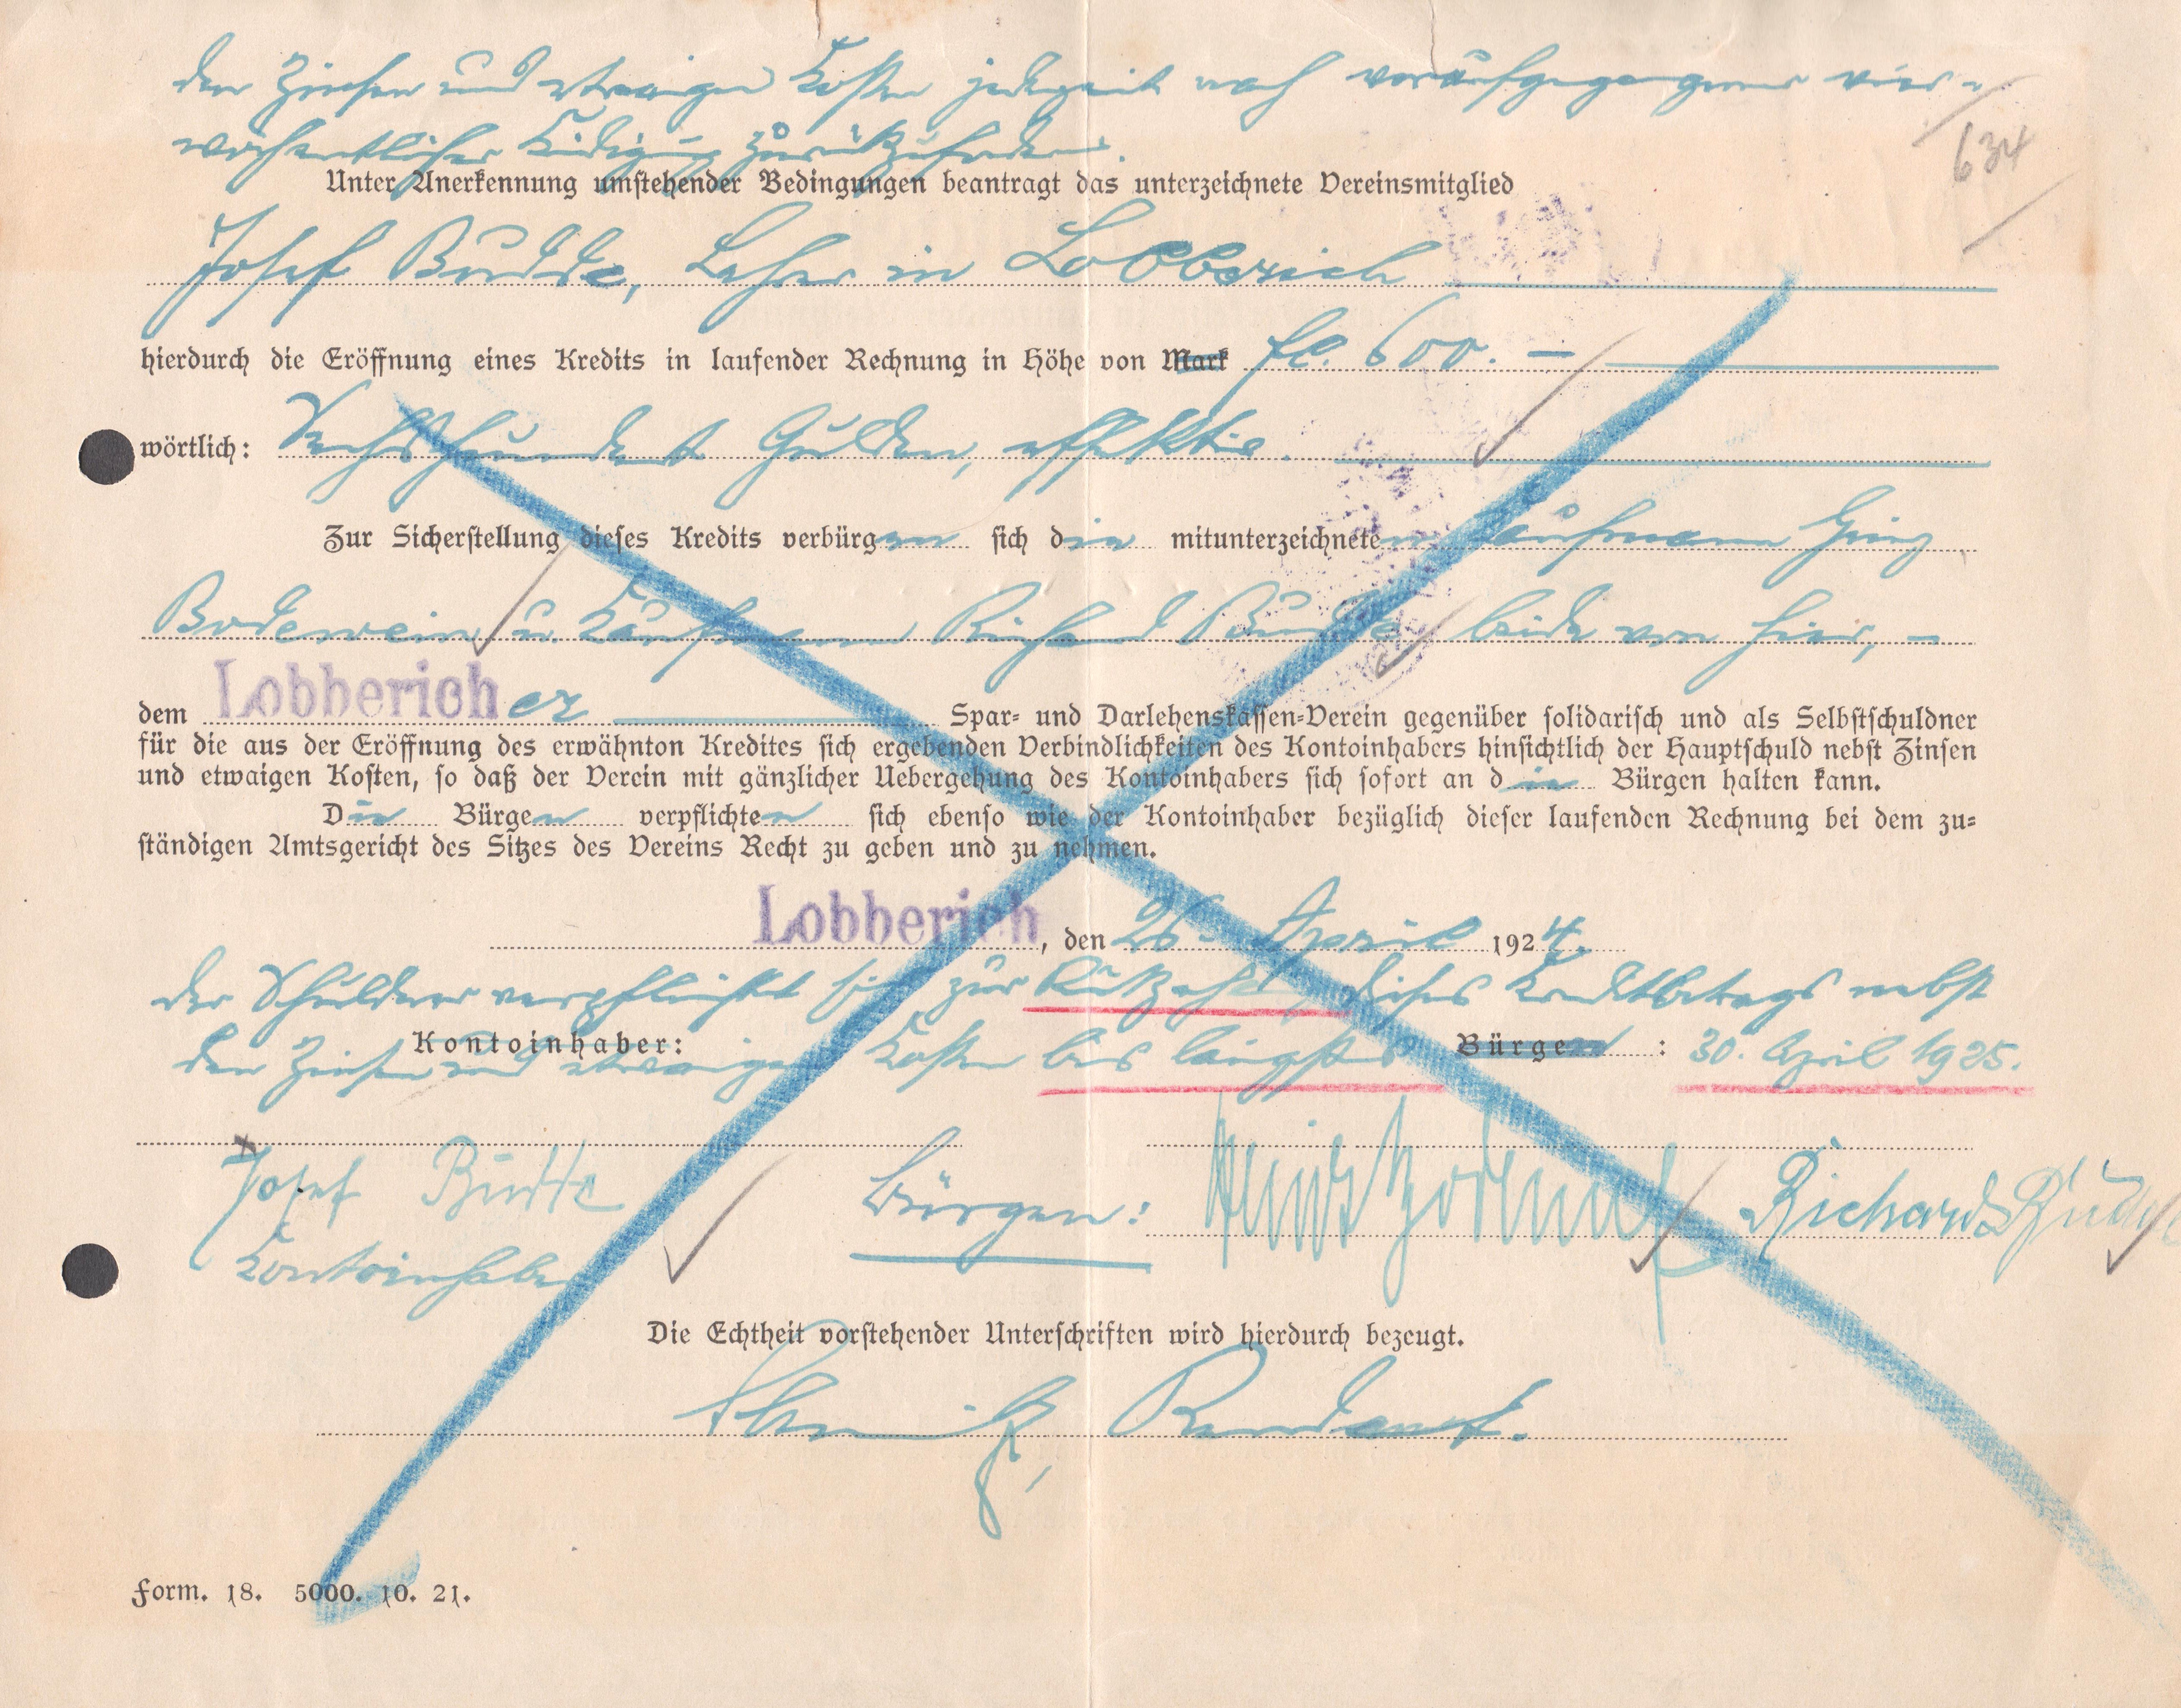 den Zinsen und etwaigen Kosten jederzeit nach voraufgegangener vier-
wöchentlicher Kündigung zurückzufordern.
634
Unter Anerkennung umstehender Bedingungen beantragt das unterzeichnete Vereinsmitglied
Josef Budde, Lehrer in Lobberich
hierdurch die Eröffnung eines Kredits in laufender Rechnung in Höhe von Mark fl. 600.–
wörtlich: Sechshundert Gulden, effektiv.
Zur Sicherstellung dieses Kredits verbürgen sich die mitunterzeichneten Kaufmann Heinz
Bodewein u. Kaufmann Richard beide von hier, –
dem Lobbericher Spar- und Darlehenskassen-Verein gegenüber solidarisch und als Selbstschuldner
für die aus der Eröffnung des erwähnton Kredites sich ergebenden Verbindlichkeiten des Kontoinhabers hinsichtlich der Hauptschuld nebst Zinsen
und etwaigen Kosten, so daß der Verein mit gänzlicher Uebergehung des Kontoinhabers sich sofort an die Bürgen halten kann.
Die Bürgen verpflichten sich ebenso wie der Kontoinhaber bezüglich dieser laufenden Rechnung bei dem zu-
ständigen Amtsgericht des Sitzes des Vereins Recht zu geben und zu nehmen.
Lobberich, den 26. April 1924.
Der Schuldner verpflichtet sich zur Rückzahlung dieses Kreditbetrags nebst
Kontoinhaber: Bürgen:
den Zinsen und etwaigen Kosten bis längstens 30. April 1925.
Josef Budde Bürgen: Heinz Richard
Kontoinhaber
Die Echtheit vorstehender Unterschriften wird hierdurch bezeugt.
Rendant.
Form. 18. 5000. 10. 21.